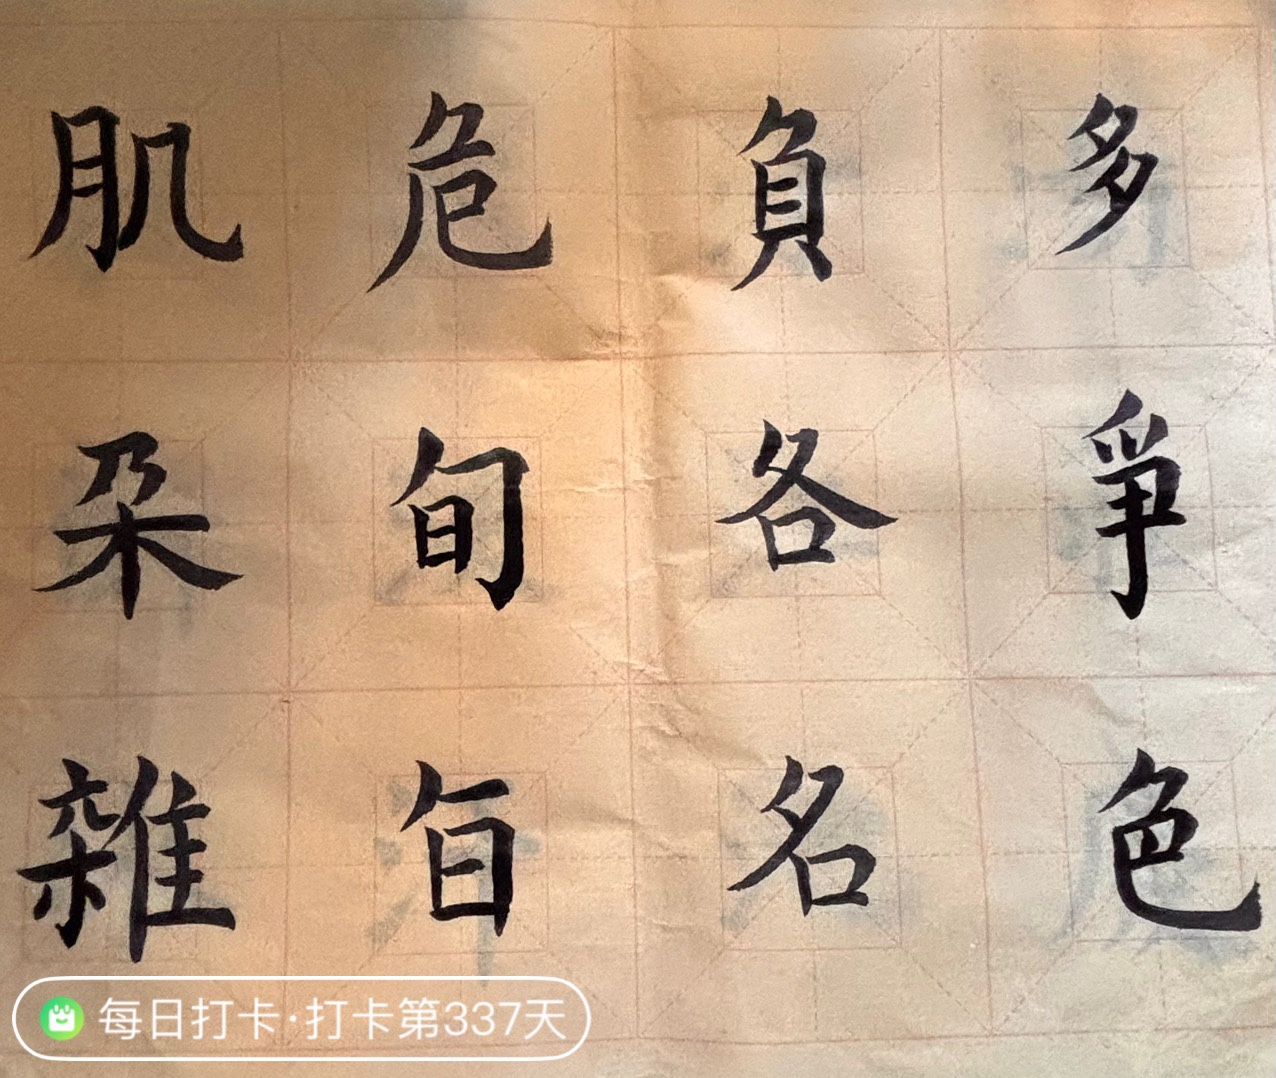 多爭色
負各名
危旬
肌朵雜
每日打卡·打卡第337天